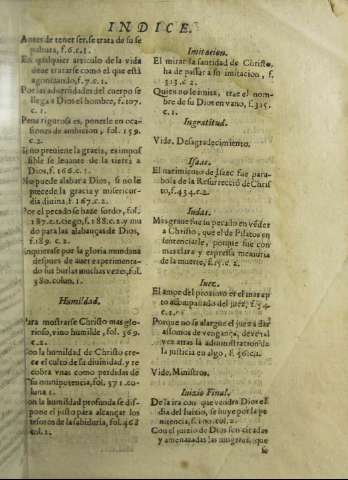 INDICE.
Antes de tener ser, se trata de su se
pultura, f.6.c.1.
En qualquier articulo de la vida
deue tratarse como el que está
agonizando, f.7.c.1.
Por las aduersidades del cuerpo se
llega a Dios el hombre, f.107.
c.1.
Pena rigurosa es, ponerle en oca
siones de ambicion, fol. 159.
c.2.
Si no preuiene la gracia, es impos
sible se leuante de la tierra a
Dios, f.166.c.1.
No puede alabar a Dios, si no le
precede la gracia y misericor
dia diuina, f.167.c.2.
Por el pecado se haze sordo, fol.
187.c.1. ciego, f.188.c.2. y mu
do para las alabanças de Dios,
f.189. c.2.
la gloria mundana
despues de auer experimenta-
do sus burlas muchas vezes, fol.
380. colun.1.
Humildad.
Para mostrarse Christo mas glo-
rioso, vino humilde, fol. 369.
c.2.
Con la humildad de Christo cre-
ce el culto de su diuinidad, y re
cobra vnas como perdidas de
su omnipotencia, fol. 371. co-
luna 1.
Con la humildad profunda se dis-
pone el justo para alcançar los
tesoros de la sabiduria, fol.468
col.1.
Imitacion.
El mirar la santidad de Christo,
ha de passar a su imitacion, f.
313.c.2.
Quien no le imita, trae el nom-
bre de su Dios en vano, f.315.
c.1.
Ingratitud.
Vide. Desagradecimiento.
Isaac.
El nacimiento de Isaac fue para-
bola de la Resurrecció de Chris
to, f.434.c.2.
Iudas.
Mas graue fue su pecado en véder
a Christo, que el de Pilatos en
sentenciarle, porque fue con
mas clara y expressa memoria
de la muerte, f.15.c.2.
Iuez.
El amor del proximo es el
acompañado del juez, f.54.
c.2.
Porque no se alargue el juez a dar
assomos de vengança, deue tal
vez atras la administración de
la justicia en algo, f. 56.c.1.
Vide. Ministros.
Iuizio Final.
De la ira con que vendra Dios el
dia del Iuizio, se huye por la pe
nitencia, f.110.col.2.
Con el juizio de Dios son citadas
y amenazadas las mugeres, que
se